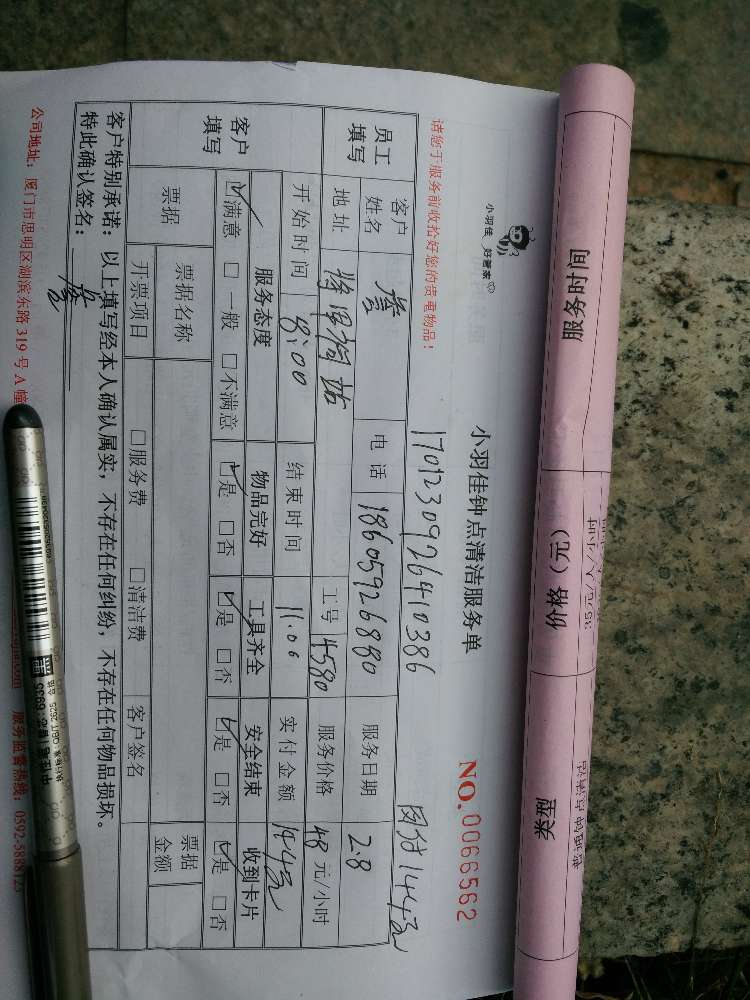 服务时间
价格（元）
类型
小羽佳 好管家
小羽佳钟点清洁服务单
NO.0066562
请您于服务前收拾好您的贵重物品！
1701230926410386
144元
员工填写
客户姓名
詹
电话
18605926880
服务日期
2.8
地址
工号
4580
服务价格
48元/小时
客户填写
开始时间
8:00
结束时间
11:00
实付金额
144元
服务态度
物品完好
工具齐全
安全结束
收到卡片
☑满意 □一般 □不满意
☑是 □否
☑是 □否
☑是 □否
☑是 □否
票据
票据名称
票据金额
开票项目
□服务费
□清洁费
客户签名
客户特别承诺：以上填写经本人确认属实，不存在任何纠纷，不存在任何物品损坏。
特此确认签名：
公司地址：厦门市思明区湖滨东路319号A幢
服务监督热线：0592-5888123